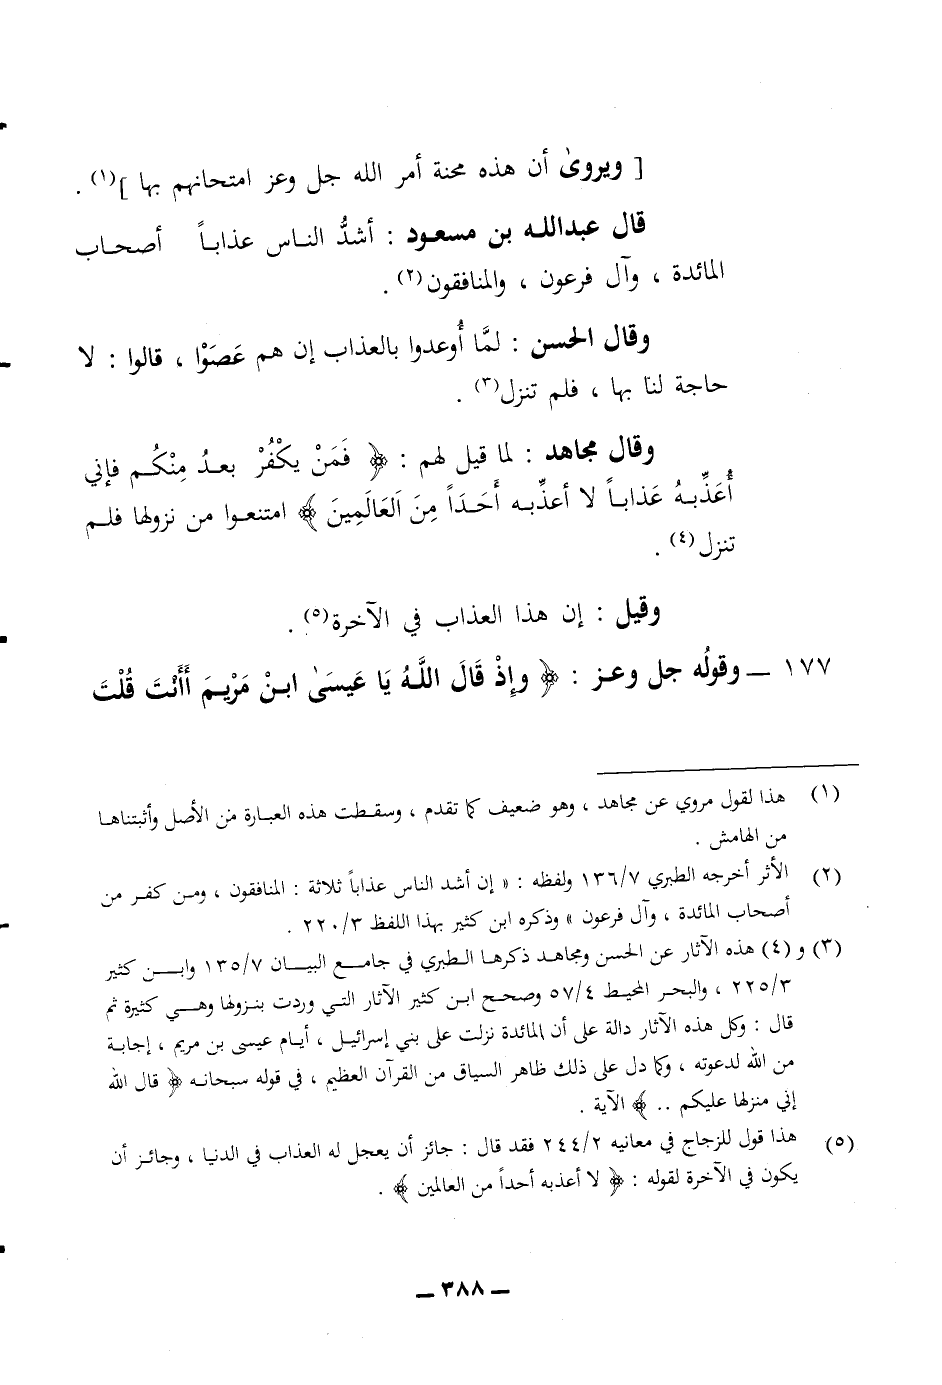 [ ويروىٰ أن هذه محنة أمر الله جل وعز امتحانهم بها ](١) .
قال عبدالله بن مسعود : أشدُّ الناس عذاباً أصحاب
المائدة ، وآل فرعون ، والمنافقون(٢) .
وقال الحسن : لمَّا أُوعدوا بالعذاب إن هم عَصَوْا ، قالوا : لا
حاجة لنا بها ، فلم تنزل(٣) .
وقال مجاهد : لما قيل لهم : ﴿ فَمَنْ يكْفُرْ بعدُ مِنْكُم فإني
أُعَذِّبهُ عَذاباً لا أعذِّبه أَحَدَاً مِنَ اَلعَالَمِينَ ﴾ امتنعوا من نزولها فلم
تنزل(٤) .
وقيل : إن هذا العذاب في الآخرة(٥) .
١٧٧ ــ وقولُه جل وعز : ﴿ وإِذْ قَالَ اللَّهُ يَا عَيسَىٰ ابنْ مَرْيمَ أَأَنْتَ قُلْتَ
(١) هذا لقول مروي عن مجاهد ، وهو ضعيف كما تقدم ، وسقطت هذه العبارة من الأصل وأثبتناها
من الهامش .
(٢) الأثر أخرجه الطبري ١٣٦/٧ ولفظه : « إن أشد الناس عذاباً ثلاثة : المنافقون ، ومن كفر من
أصحاب المائدة ، وآل فرعون » وذكره ابن كثير بهذا اللفظ ٢٢٠/٣ .
(٣) و (٤) هذه الآثار عن الحسن ومجاهد ذكرها الطبري في جامع البيان ١٣٥/٧ وابن كثير
٢٢٥/٣ ، والبحر المحيط ٥٧/٤ وصحح ابن كثير الآثار التي وردت بنزولها وهي كثيرة ثم
قال : وكل هذه الآثار دالة على أن المائدة نزلت على بني إسرائيل ، أيام عيسى بن مريم ، إجابة
من الله لدعوته ، وكما دل على ذلك ظاهر السياق من القرآن العظيم ، في قوله سبحانه ﴿ قال الله
إني منزلها عليكم .. ﴾ الآية .
(٥) هذا قول للزجاج في معانيه ٢٤٤/٢ فقد قال : جائز أن يعجل له العذاب في الدنيا ، وجائز أن
يكون في الآخرة لقوله : ﴿ لا أعذبه أحداً من العالمين ﴾ .
ــ ٣٨٨ ــ